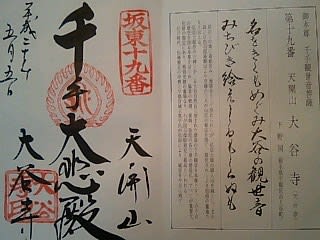 御本尊 千手観世音菩薩
第十九番 天開山 大谷寺
下野国
名をきくもめぐみ大谷の観世音
みちびき給へしるもしらぬも
坂東十九番
天開山
千手大悲殿
大谷寺
平成二十
五月五日